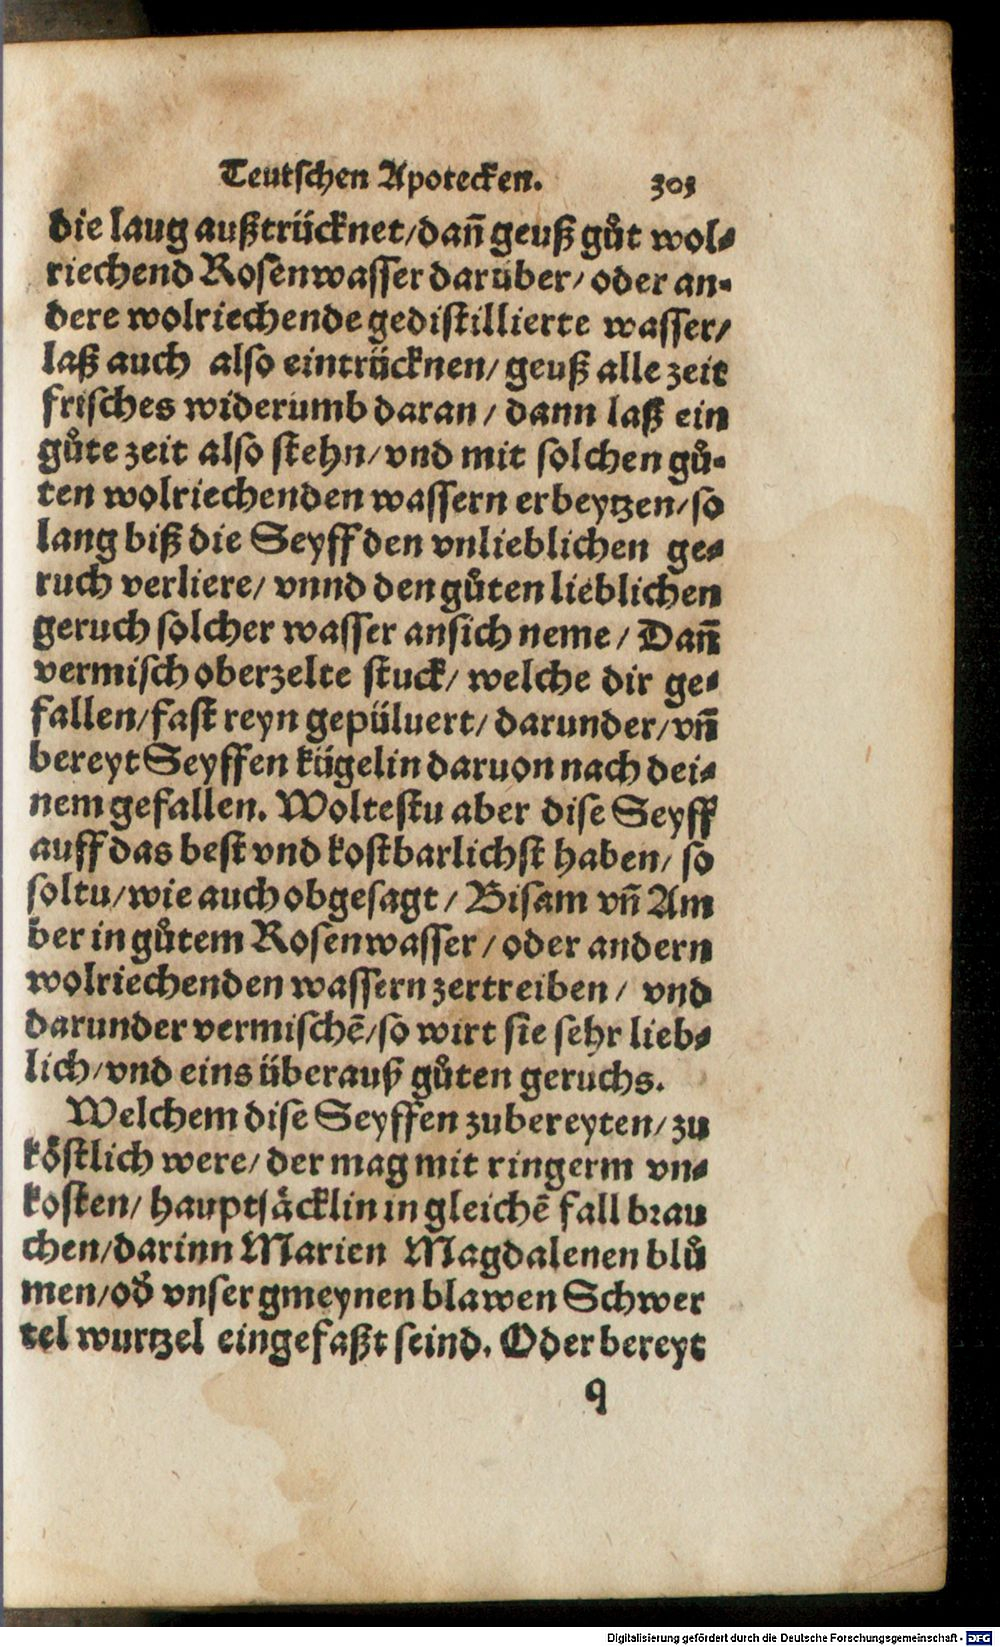 Teutschen Apotecken. 305
die laug außtrücknet/dañ geuß gůt wol⸗
riechend Rosenwasser darüber/ oder an⸗
dere wolriechende gedistillierte wasser/
laß auch also eintrücknen/ geuß alle zeit
frisches widerumb daran/ dann laß ein
gůte zeit also stehn/ vnd mit solchen gů⸗
ten wolriechenden wassern erbeytzen/ so
lang biß die Seyff den vnlieblichen ge⸗
ruch verliere/ vnnd den gůten lieblichen
geruch solcher wasser ansich neme/ Dañ
vermisch oberzelte stuck/ welche dir ge⸗
fallen/ fast reyn gepüluert/ darunder/ vñ
bereyt Seyffen kügelin daruon nach dei⸗
nem gefallen. Woltestu aber dise Seyff
auff das best vnd kostbarlichst haben/ so
soltu/ wie auch obgesagt/ Bisam vñ Am
ber in gůtem Rosenwasser/ oder andern
wolriechenden wassern zertreiben/ vnd
darunder vermischē/ so wirt sie sehr lieb⸗
lich/ vnd eins überauß gůten geruchs.
Welchem dise Seyffen zubereyten/ zu
köstlich were/ der mag mit ringerm vn⸗
kosten/ hauptsäcklin in gleichē fall brau
chen/ darinn Marien Magdalenen blů
men/ od̕ vnser gmeynen blawen Schwer
tel wurtzel eingefaßt seind. Oder bereyt
q
Digitalisierung gefördert durch die Deutsche Forschungsgemeinschaft - DFG